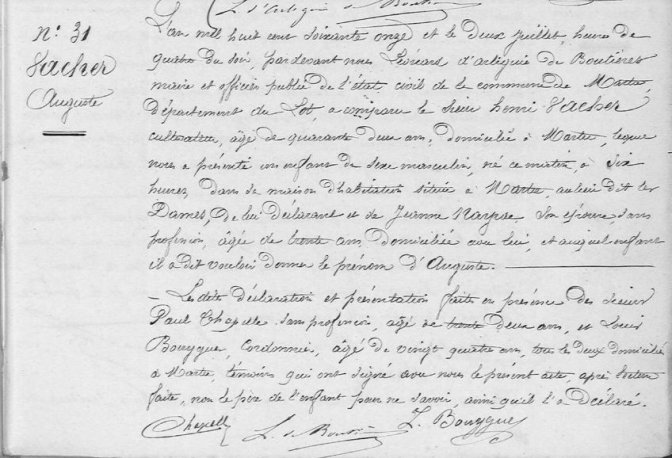 n.° 31
Vacher
Auguste
L'an mil huit cent soixante onze et le deux juillet, heure de
quatre du soir, par devant nous Léonard d'artiguie de Boutières
maire et officier public de l'état civil de la commune de Martel,
département du Lot, a comparu le sieur henri Vacher
cultivateur, agé de quarante deux ans, domicilié à Martel, lequel
nous a présenté un enfant de sexe masculin, né ce matin, à six
heures, dans sa maison d'habitation située à Martel, au lieu dit les
Dames, de lui déclarant et de Jeanne son épouse sans
profession, âgée de trente ans, domiciliée avec lui, et auquel enfant
il a dit vouloir donner le prénom d'Auguste.
— Les dites déclaration et présentation faites en présence des sieurs
Paul Chapelle sans profession, agé de trente deux ans, et Louis
Bouygue, Cordonnier, âgé de vingt quatre ans, tous les deux domiciliés
à Martel, témoins qui ont signé avec nous le présent acte, après lecture
faite, non le père de l'enfant pour ne savoir, ainsi qu'il l'a déclaré.
Chapelle
L. de Boutières
L. Bouygue